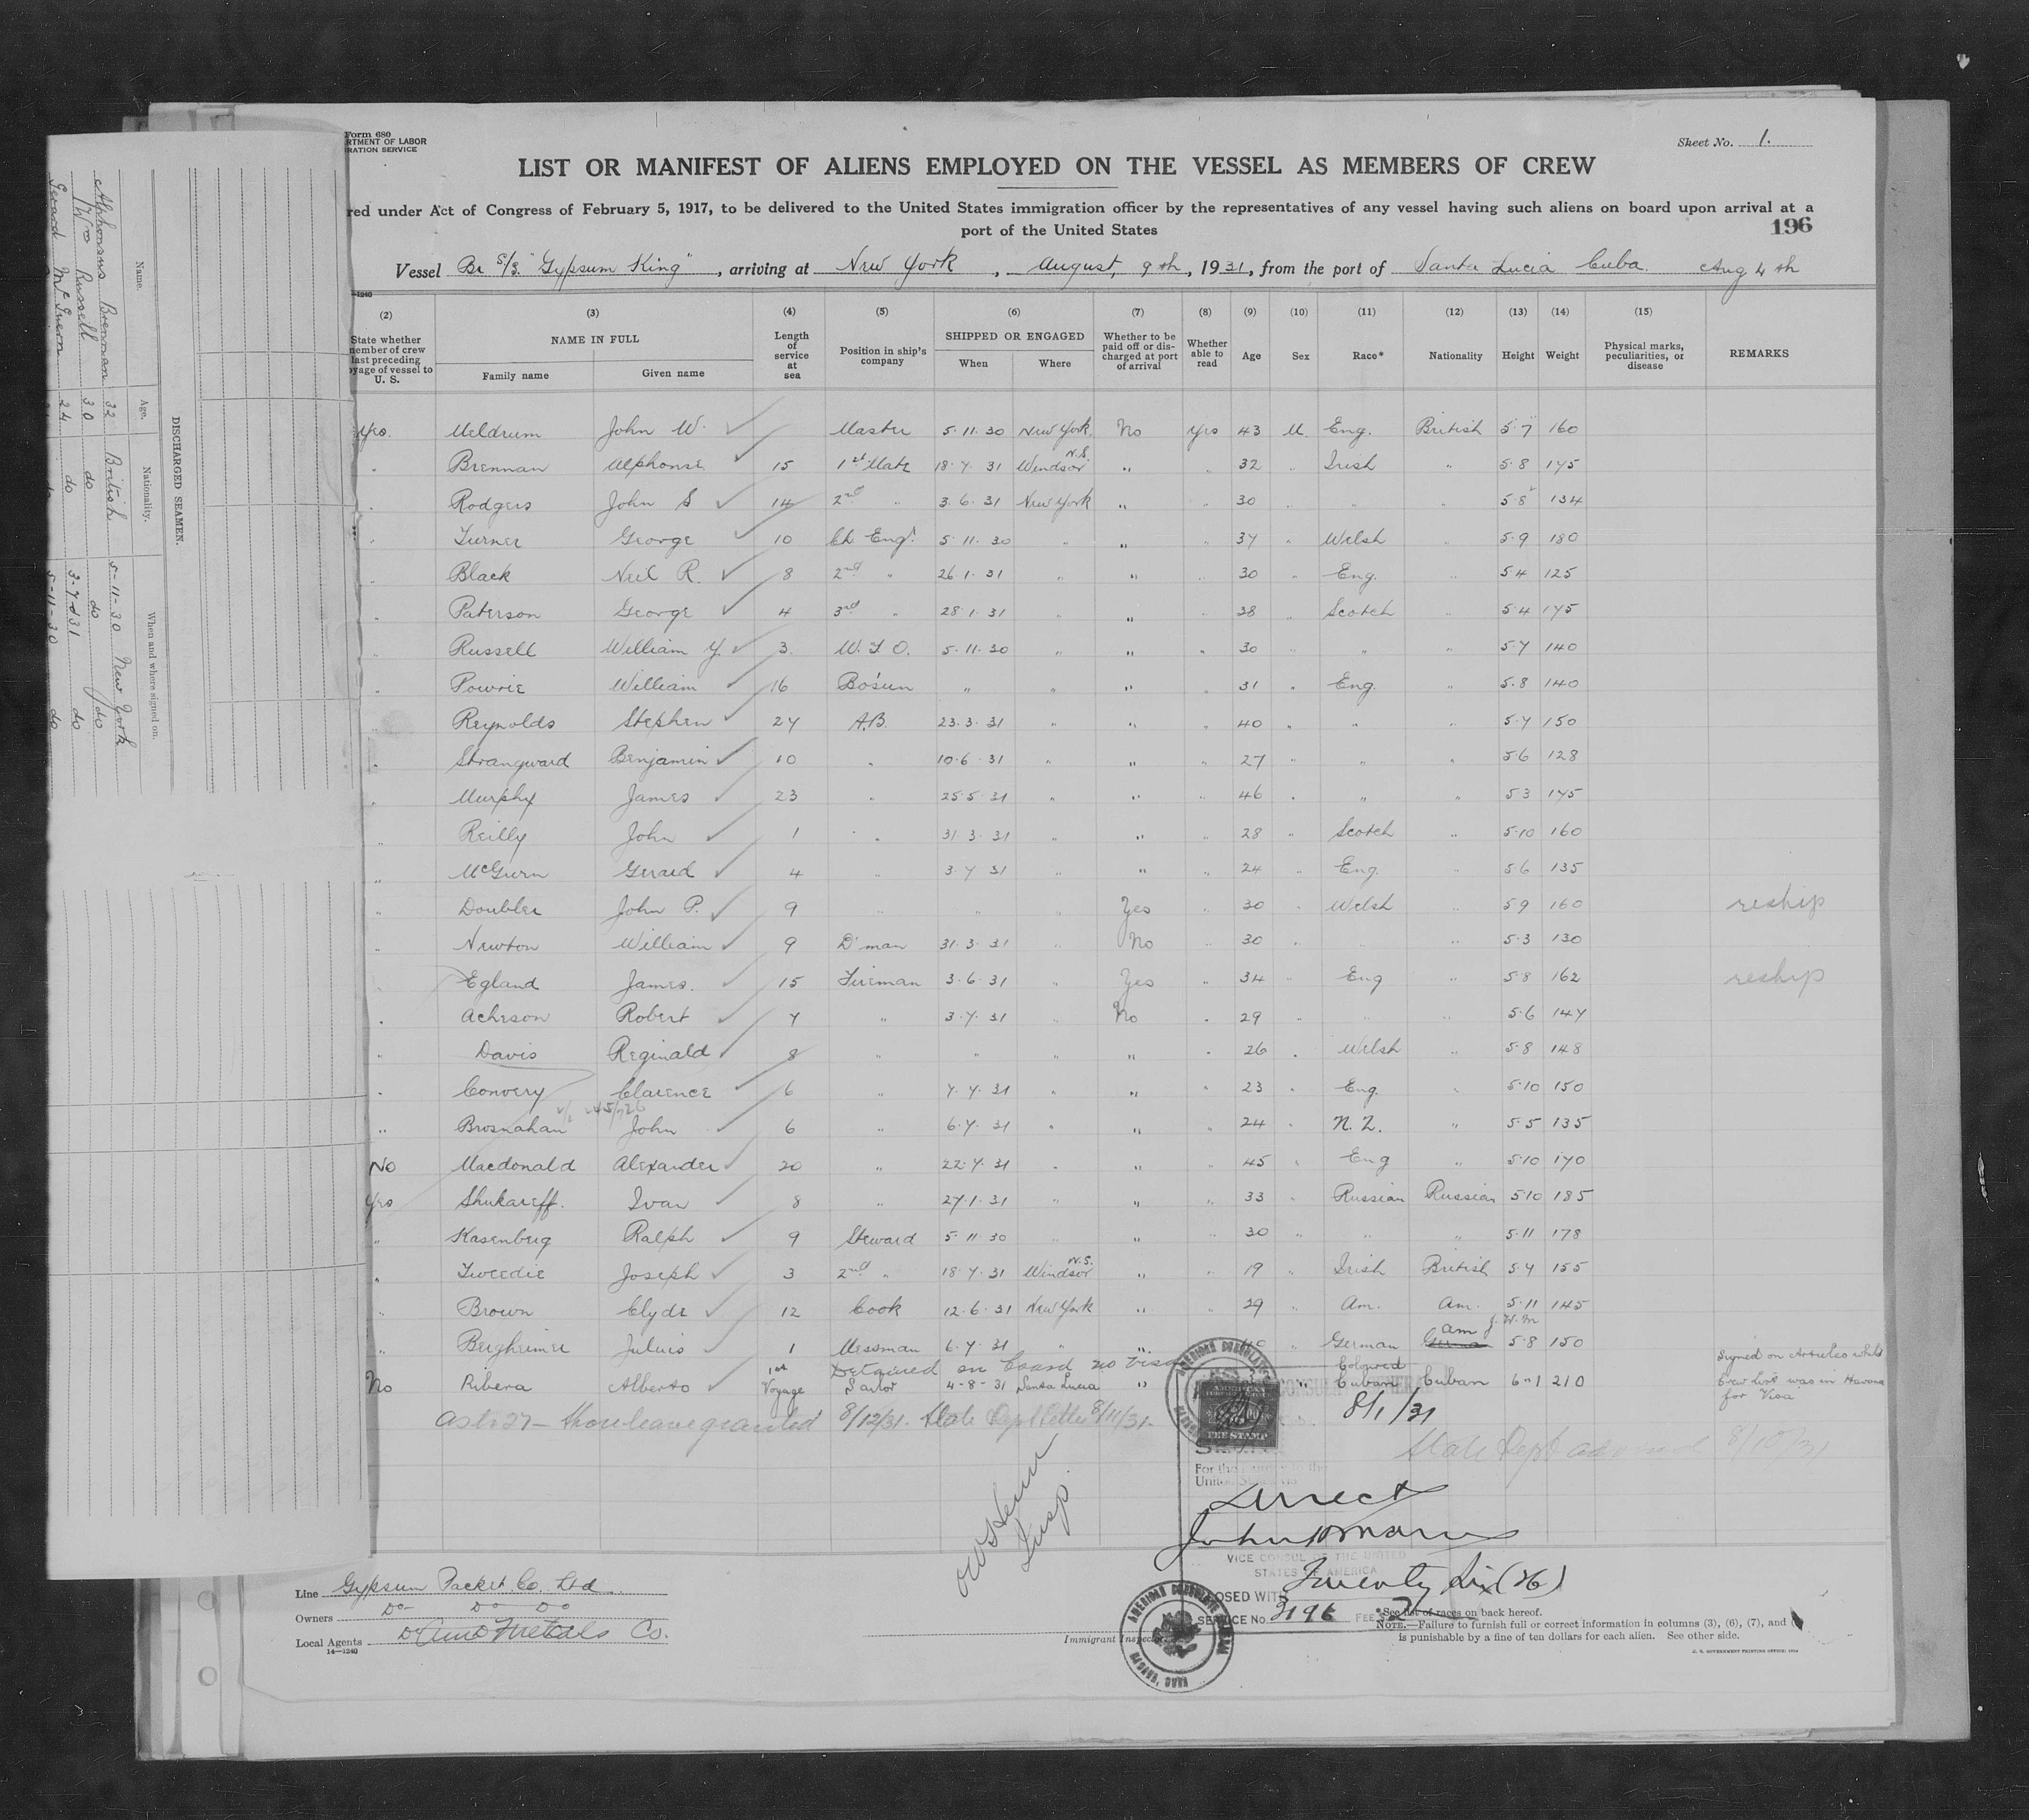 Form 680
RTMENT OF LABOR
RATION SERVICE
Sheet No. 1.
LIST OR MANIFEST OF ALIENS EMPLOYED ON THE VESSEL AS MEMBERS OF CREW
red under Act of Congress of February 5, 1917, to be delivered to the United States immigration officer by the representatives of any vessel having such aliens on board upon arrival at a
port of the United States
196
Vessel Br S/S. "Gypsum King", arriving at New York, August, 9th, 1931, from the port of Santa Lucia Cuba. Aug 4th
(2) (3) (4) (5) (6) (7) (8) (9) (10) (11) (12) (13) (14) (15)
State whether member of crew last preceding voyage of vessel to U. S. NAME IN FULL Family name Given name Length of service at sea Position in ship's company SHIPPED OR ENGAGED When Where Whether to be paid off or discharged at port of arrival Whether able to read Age Sex Race* Nationality Height Weight Physical marks, peculiarities, or disease REMARKS
Yes. Meldrum John W. Master 5.11.30 New York. No Yes 43 M. Eng. British 5 7 160
" Brennan Alphonse 15 1st Mate 18.7.31 Windsor N.S. " " 32 " Irish " 5.8 175
" Rodgers John S 14 2nd " 3.6.31 New York " " 30 " " " 5.8 134
" Turner George 10 Ch Engr. 5.11.30 " " " 37 " Welsh " 5.9 180
" Black Neil R. 8 2nd " 26.1.31 " " " 30 " Eng. " 5 4 125
" Paterson George 4 3rd " 28.1.31 " " " 38 " Scotch " 5.4 175
" Russell William Y. 3. W.T.O. 5.11.30 " " " 30 " " " 5.7 140
" Powrie William 16 Bo'sun " " " " 31 " Eng. " 5.8 140
" Reynolds Stephen 27 A.B. 23.3.31 " " " 40 " " " 5.7 150
" Strangward Benjamin 10 " 10.6.31 " " " 27 " " " 5.6 128
" Murphy James 23 " 25.5.31 " " " 46 " " " 5 3 175
" Reilly John 1 " 31.3.31 " " " 28 " Scotch " 5.10 160
" McGurn Gerard 4 " 3.7.31 " " " 24 " Eng. " 5 6 135
" Doubler John P. 9 " " " Yes " 30 " Welsh " 5 9 160 reship
" Newton William 9 D'man 31.3.31 " No " 30 " " 5.3 130
" Egland James. 15 Fireman 3.6.31 " Yes " 34 " Eng " 5.8 162 reship
" Acheson Robert 7 " 3.7.31 " No " 29 " " " 5.6 147
" Davis Reginald 8 " " " " " 26 " Welsh " 5.8 148
" Convery Clarence 6 " 7.7.31 " " " 23 " Eng. " 5.10 150
" Brosnahan John 6 " 6.7.31 " " " 24 " N.Z. " 5.5 135
No Macdonald Alexander 20 " 22.7.31 " " " 45 " Eng " 5.10 170
Yes Shukareff. Ivan 8 " 27.1.31 " " " 33 " Russian Russian 5.10 185
" Kasenberg Ralph 9 Steward 5.11.30 " " " 30 " " " 5.11 178
" Tweedie Joseph 3 2nd " 18.7.31 Windsor N.S. " " 19 " Irish British 5.7 155
" Brown Clyde 12 Cook 12.6.31 New York " " 29 " Am. Am. 5.11 145
" Bergheimer Julius 1 Messman 6.7.31 " " German am J.W.M 5.8 150
Detained on board no visa
No Ribera Alberto 1st Voyage Sailor 4-8-31 Santa Lucia " " Coloured Cuban Cuban 6.1 210
Signed on Articles whilst
Crew List was in Havana
for Visa
8/12/31. State Dept letter 8/11/31-
8/1/31
State Dept 8/10/31
FEE STAMP
For the
Direct
Insp.
VICE CONSUL OF THE UNITED
STATES OF AMERICA
Twenty Six (26)
SERVICE No. 3196 FEE 2
AMERICAN CONSULATE GENERAL
Line Gypsum Packet Co. Ltd.
Owners Do- Do Do
Local Agents Co.
14—1240
Immigrant Inspector.
*See list of races on back hereof.
NOTE.—Failure to furnish full or correct information in columns (3), (6), (7), and
is punishable by a fine of ten dollars for each alien. See other side.
DISCHARGED SEAMEN.
Name. Age. Nationality. When and where signed on.
Alphonsus Brennan 32 British 5-11-30 New York
Wm Russell 30 do do do
Gerard McGuern 24 do 3-7-31 do
5-11-30 do